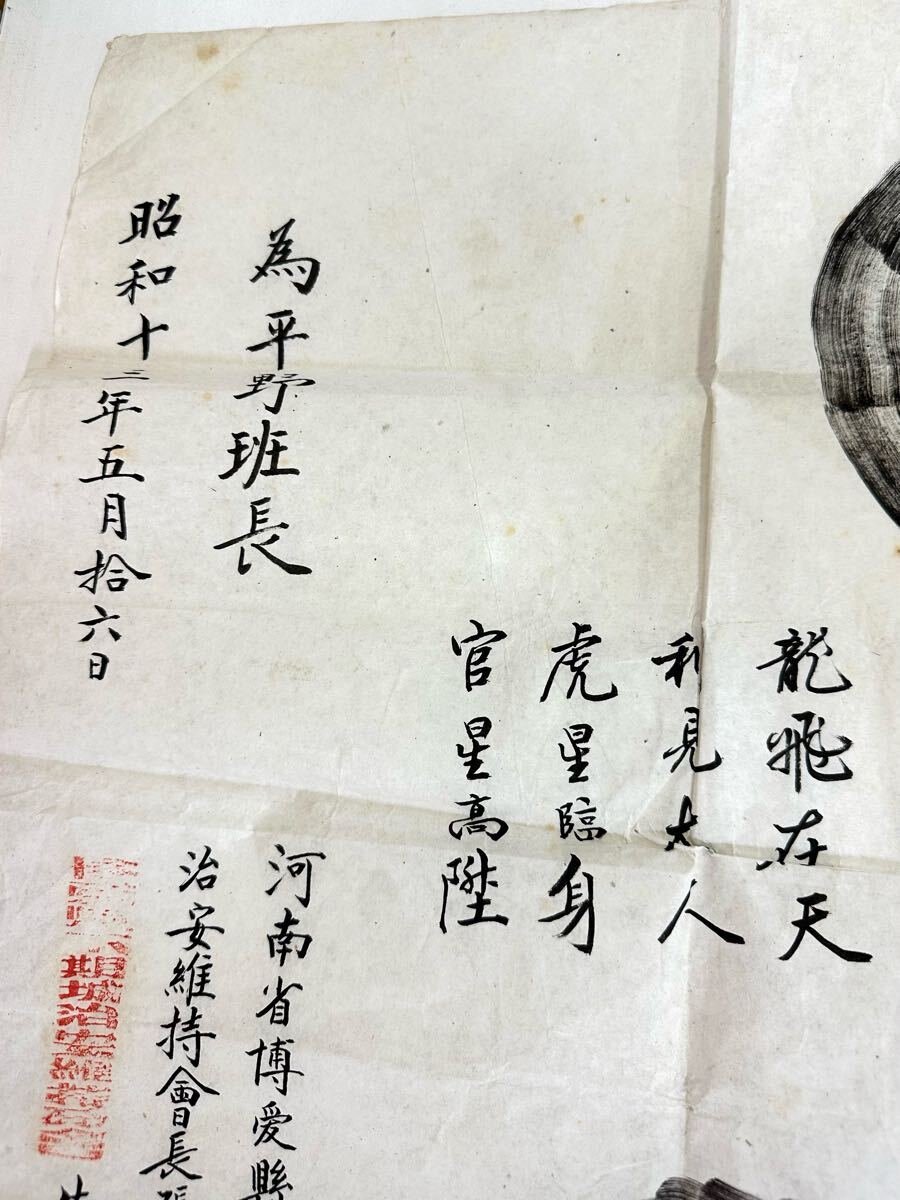 龍飛在天
利見大人
虎星臨身
官星高陞
為平野班長
昭和十三年五月拾六日
河南省博愛縣
治安維持會長張
期城治安維持會